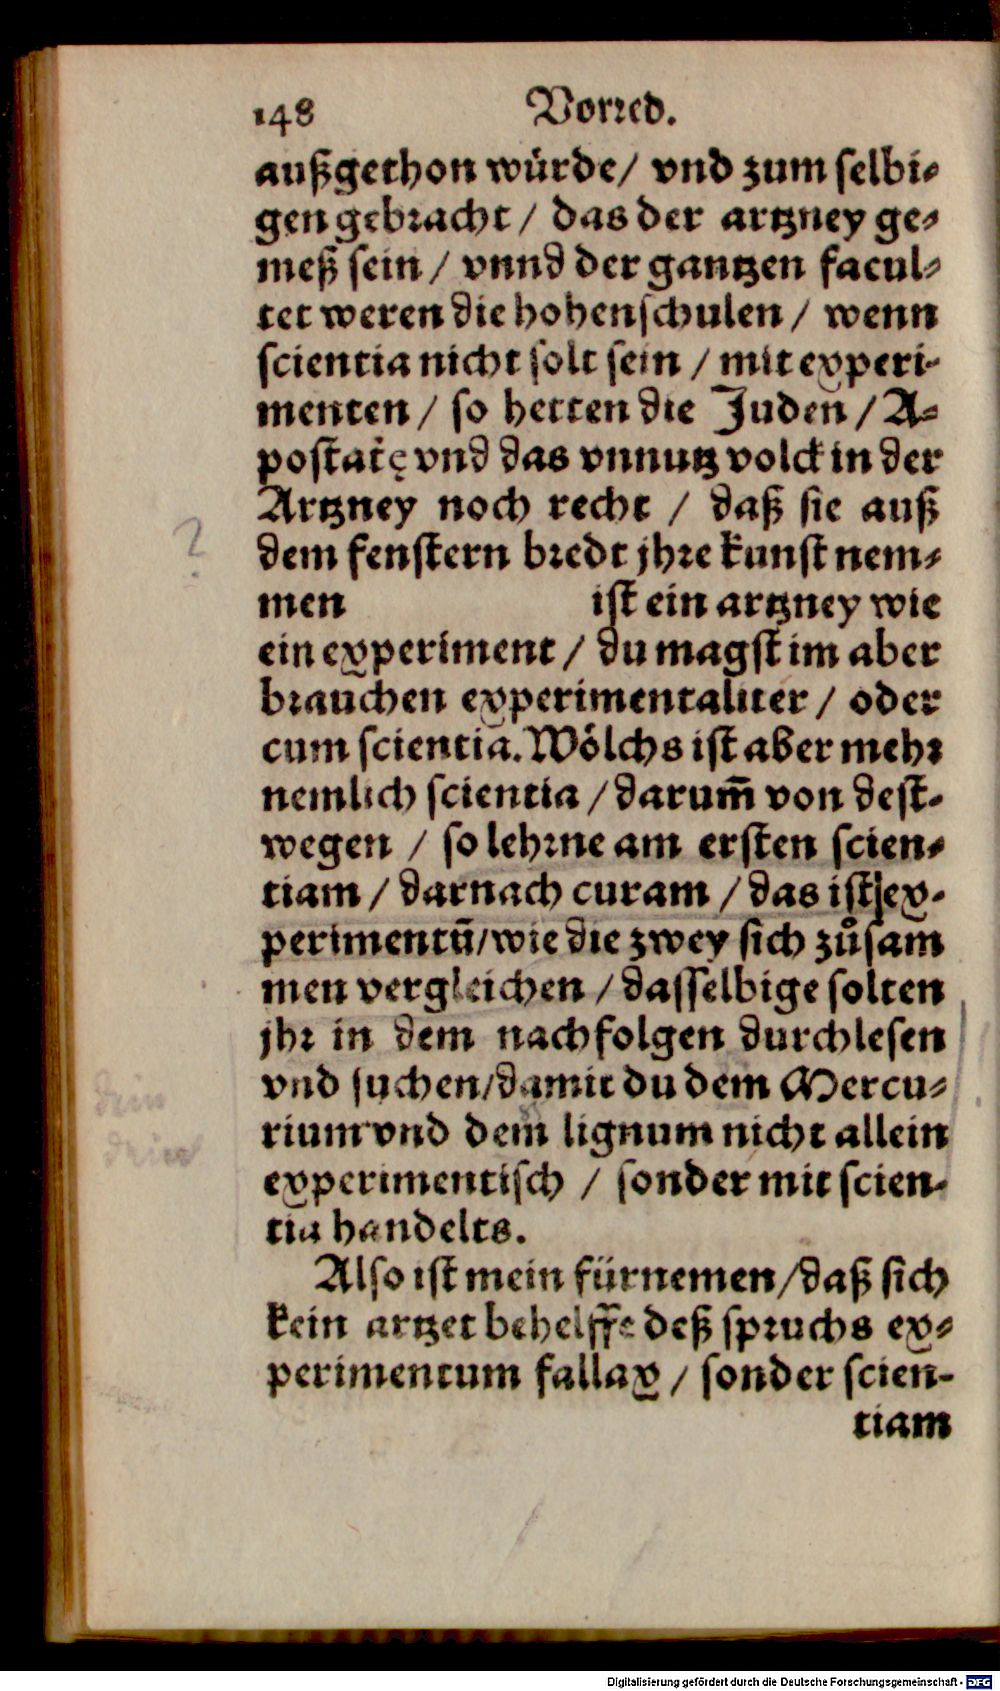 148 Vorred.
außgethon würde/ vnd zum selbi-
gen gebracht / das der artzney ge-
meß sein / vnnd der gantzen facul-
tet weren die hohenschulen / wenn
scientia nicht solt sein / mit experi-
menten / so hetten die Juden / A-
postatę vnd das vnnutz volck in der
Artzney noch recht / daß sie auß
dem fenstern bredt jhre kunst nem-
men ist ein artzney wie
ein experiment / du magst im aber
brauchen experimentaliter / oder
cum scientia. Wölchs ist aber mehr
nemlich scientia / darum̄ von dest-
wegen / so lehrne am ersten scien-
tiam / darnach curam / das ist ex-
perimentū/wie die zwey sich zůsam
men vergleichen / dasselbige solten
jhr in dem nachfolgen durchlesen
vnd suchen/damit du dem Mercu-
rium vnd dem lignum nicht allein
experimentisch / sonder mit scien-
tia handelts.
Also ist mein fürnemen/daß sich
kein artzet behelffe deß spruchs ex-
perimentum fallax / sonder scien-
tiam
?
Digitalisierung gefördert durch die Deutsche Forschungsgemeinschaft - DFG